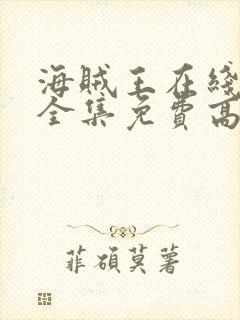 海賊王在綫
全集免費高
菲碩莫著